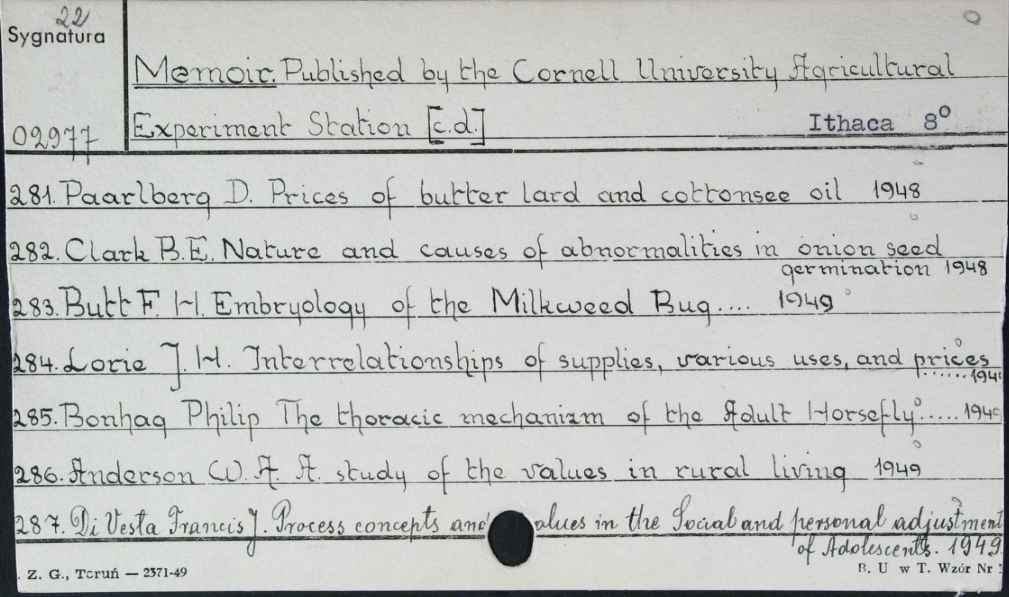 22
Sygnatura
Memoir. Published by the Cornell University Agricultural
02977 Experiment Station [c.d.] Ithaca 8°
281. Paarlberg D. Prices of butter lard and cottonsee oil 1948
282. Clark B.E. Nature and causes of abnormalities in onion seed
germination 1948
283. Butt F. H. Embryology of the Milkweed Bug.... 1949
284. Lorie J. H. Interrelationships of supplies, various uses, and prices
......194
285. Bonhag Philip The thoracic mechanizm of the Adult Horsefly.....194
286. Anderson W. A. A. study of the values in rural living 1949
287. Di Vesta Francis J. Process concepts and alues in the Social and personal adjustment
of Adolescents. 1949
Z. G., Toruń — 2371-49 B. U w T. Wzór Nr